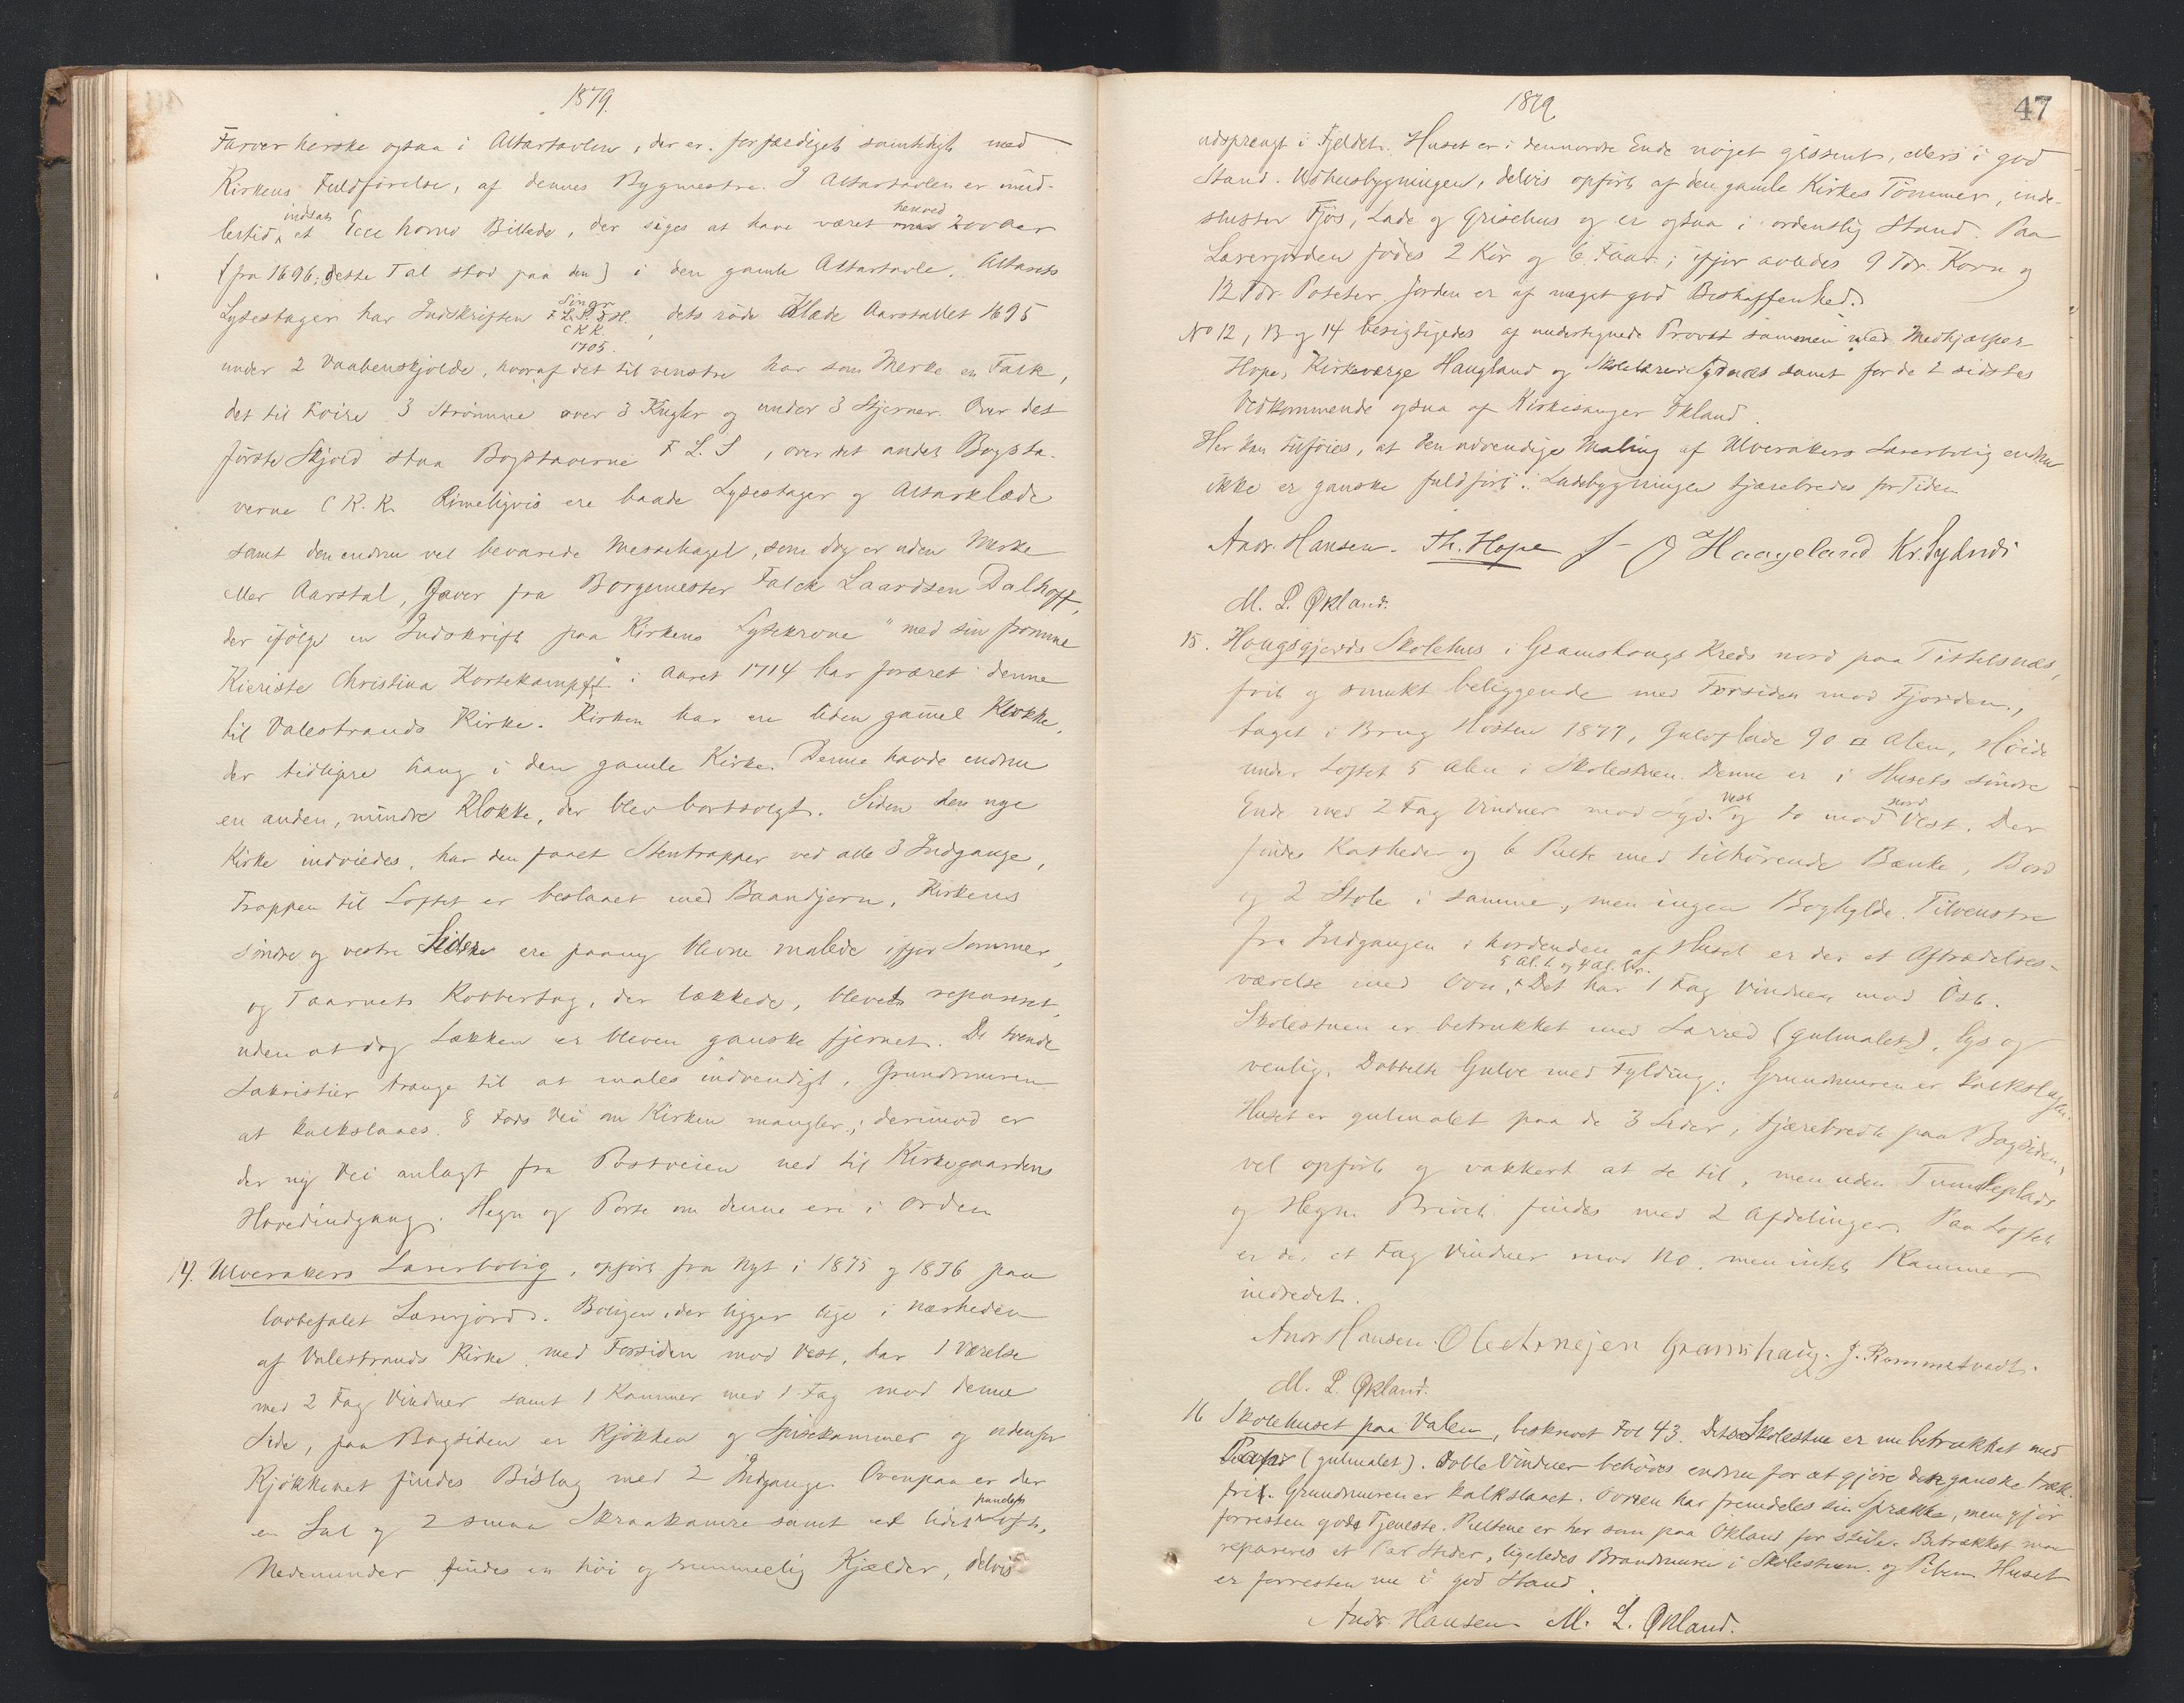 1879.
Farver herske ogsaa i Altartavlen, der er forfærdiget samtidigt med
Kirkens Fuldførelse, af dennes Bygmestre. I Altartavlen er imid-
indsat
lertid et Ecce homo Billede, der siges at have været henved 200 Aar
(fra 1696; dette Tal stod paa den) i den gamle Altartavle. Altarets
Lysestager har Indskriften , dets røde Klæde Aarstallet 1695
C K K.
1705.
under 2 Vaabenskjolde, hvoraf det til venstre har som Merke en Falk,
det til høire 3 Strømme over 3 Kugler og under 3 Stjerner. Over det
første Skjold staa Bogstaverne F L. S , over det andet Bogsta-
verne C K. K. Rimeligvis ere baade Lysestager og Altarklæde
samt den endnu vel bevarede Messehagel, som dog er uden Merke
eller Aarstal, Gaver fra Borgemester Falck Laardsen Dalhoff,
der ifølge en Indskrift paa Kirkens Lysekrone "med sin fromme
Kieriste Christina Kortekampff" i Aaret 1714 har foræret denne
til Valestrands Kirke. Kirken har en liden gamel Klokke,
der tidligere hang i den gamle Kirke. Denne havde endnu
en anden, mindre Klokke, der blev bortsolgt. Siden den nye
Kirke indviedes, har den faaet Stentrapper ved alle 3 Indgange,
Trappen til Loftet er beslaaet med Baandjern, Kirkens
søndre og vestre Sider ere paany blevne malede ifjor Sommer,
og Taarnets Kobbertag, der lækkede, blevet repareret,
uden at dog Lækken er bleven ganske fjernet. De tvende
Sakristier trænge til at males indvendigt, Grundmuren
at kalkslaaes. 8 Fods Vei om Kirken mangler; derimod er
der ny Vei anlagt fra Postveien ned til Kirkegaardens
Hovedindgang. Hegn og Porte om denne ere i Orden
14. Ulverakers Lærerbolig, opført fra Nyt i 1875 og 1876 paa
lovbefalet Lærerjord. Boligen, der ligger lige i Nærheden
af Valestrands Kirke med Forsiden mod Vest, har 1 Værelse
med 2 Fag Vinduer samt 1 Kammer med 1 Fag mod denne
Side, paa Bagsiden er Kjøkken og Spisekammer og udenfor
Kjøkkenet findes Bislag med 2 Indgange. Ovenpaa er der
en Sal og 2 smaa Skraakamre samt et lidet Loft,
Nedenunder findes en høi og rummelig Kjælder, delvis
1879
47
udsprængt i Fjeldet. Huset er i den nordre Ende noget gissent, ellers i god
Stand. Udhusbygningen, delvis opført af den gamle Kirkes Tømmer, inde-
slutter Fjøs, Lade og Grisehus og er ogsaa i ordentlig Stand. Paa
Lærerjorden fødes 2 Kør og 6 Faar; ifjor avledes 9 Tdr. Korn og
12 Tdr. Poteter. Jorden er af meget god Beskaffenhed.
No 12, 13 og 14 besigtigedes af undertegnede Provst sammen med Medhjælper
Hope, Kirkeværge Haugland og Skolelærer Sydnæs samt for de 2 sidstes
Vedkommende ogsaa af Kirkesanger Økland.
Her kan tilføies, at den udvendige Maling af Ulverakers Lærerbolig endnu
ikke er ganske fuldført. Ladebygningen tjærebredes for Tiden
Andr. Hansen. Th. Hope J- J Haageland Kr. Sydnes
M. L. Økland.
15. Hougsgjerds Skolehus i Gramshougs Kreds nord paa Tittelsnæs,
frit og smukt beliggende med Forsiden mod Fjorden,
taget i Brug Høsten 1877, Gulvflade 90 □ Alen, Høide
under Loftet 5 Alen i Skolestuen. Denne er i Husets søndre
Ende med 2 Fag Vinduer mod Syd. og to mod Vest. Der
findes Katheder og 6 Pulte med tilhørende Bænke, Bord
og 2 Stole i samme, men ingen Boghylde. Tilvenstre
fra Indgangen i Nordenden af Huset er der et Aftrædelses-
5 Al. l. og 4 Al. br.
værelse med Ovn. Det har 1 Fag Vinduer mod Øst.
Skolestuen er betrukket med Lærred (gulmalet), lys og
venlig. Dobbelte Gulve med Fylding. Grundmuren er kalkslagen.
Huset er gulmalet paa de 3 Sider, tjærebredt paa Bagsiden,
vel opført og vakkert at se til, men uden Tumleplads
og Hegn. Privet findes med 2 Afdelinger. Paa Loftet
er der et Fag Vinduer mod NO. men intet Kammer
indredet.
Andr Hansen. Ole Gramshaug. J. Rommetvedt.
M. L. Økland.
16 Skolehuset paa Valen, beskrevet Fol 43. Dets Skolestue er nu betrukket med
Papir (gulmalet). Doble Vinduer behøves endnu for at gjøre den ganske træk-
fri. Grundmuren er kalkslaaet. Ovnen har fremdeles sin Sprække, men gjør
forresten god Tjeneste. Pultene er her som paa Økland for steile. Betrækket maa
repareres et Par Steder, ligeledes Brandmuren i Skolestuen og Piben. Huset
er forresten nu i god Stand.
Andr Hansen M. L. Økland.